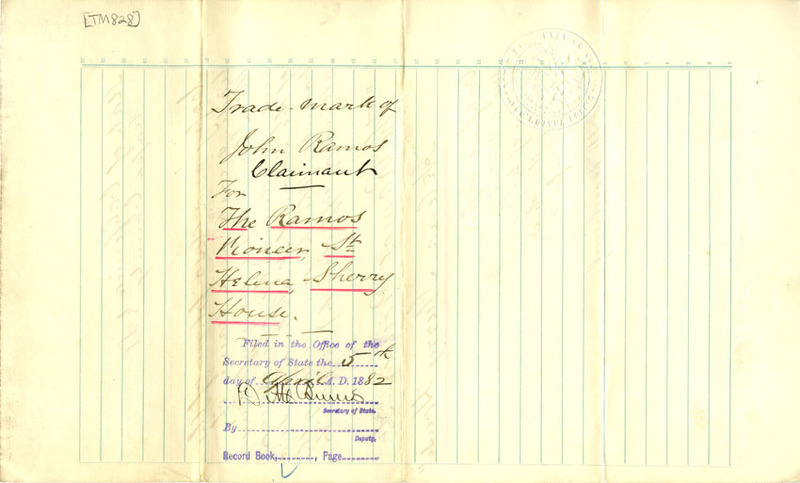 [TM828]
Trade-mark of
John Ramos
Claimant
For
The Ramos
Pioneer, St
Helena, Sherry
House.
Filed in the Office of the
Secretary of State the 5th
day of April A. D. 1882
Secretary of State.
By
Deputy.
Record Book, , Page